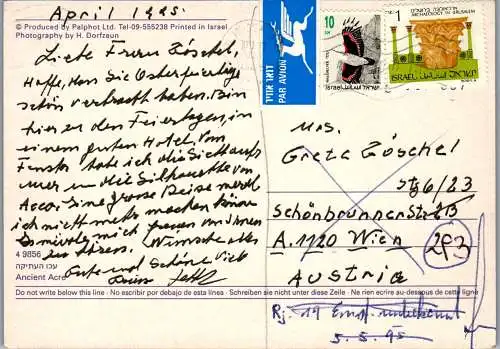 April 1995.
© Produced by Palphot Ltd. Tel-09-555238 Printed in Israel
Photography by H. Dorfzaun
Liebe Frau Zöschel,
Hoffe, Sie Osterfeiertage
schön verbracht haben. Bin
hier zu den Feiertagen, in
einem guten Hotel. Vom
Fenster habe ich die Sicht aufs
Meer und die Silhouette von
Acco. Eine grosse Reise werde
ich nicht mehr machen können
von Ihnen
zu hören. Wünsche alles
Gute und schöne
4 9856
עכו העתיקה
Ancient Acre
Do not write below this line · No escribir por debajo de esta linea · Schreiben sie nicht unter diese Zeile · Ne rien ecrire au-dessous de cette ligne
דואר אויר
PAR AVION
10
Israel
1
ISRAEL
Mrs.
Greta Zöschel
Stg 6/23
Schönbrunnerstr.
A. 1120 Wien
293
Austria
Rj. 19 Ernst
5.5.95